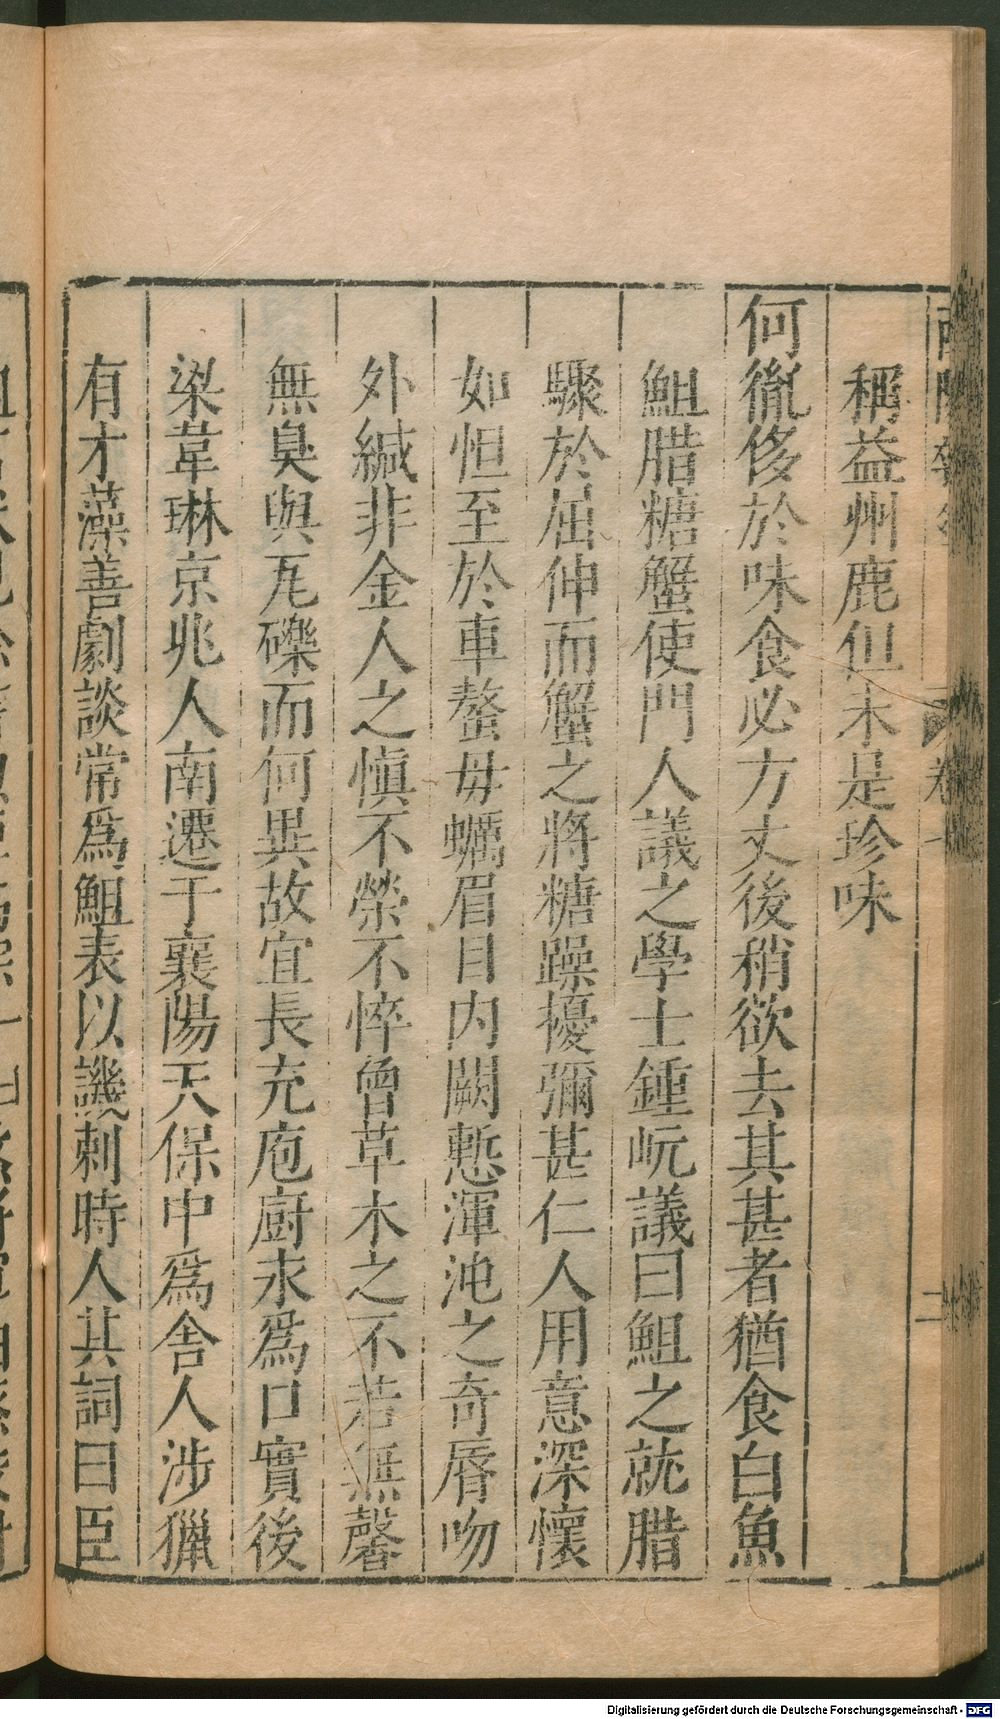 稱益州鹿但未是珍味
何胤侈於味食必方丈後稍欲去其甚者猶食白魚
䱉腊糖蟹使門人議之學士鍾岏議曰䱉之就腊
驟於屈伸而蟹之將糖躁擾彌甚仁人用意深懷
如怛至於車螯毋蠣眉目内闕慙渾沌之奇脣吻
外緘非金人之慎不榮不悴曾草木之不若無馨
無臭與瓦礫而何異故宜長充庖廚永爲口實後
梁韋琳京兆人南遷于襄陽天保中爲舎人涉獵
有才藻善劇談常爲䱉表以譏刺時人其詞曰臣
Digitalisierung gefördert durch die Deutsche Forschungsgemeinschaft - DFG